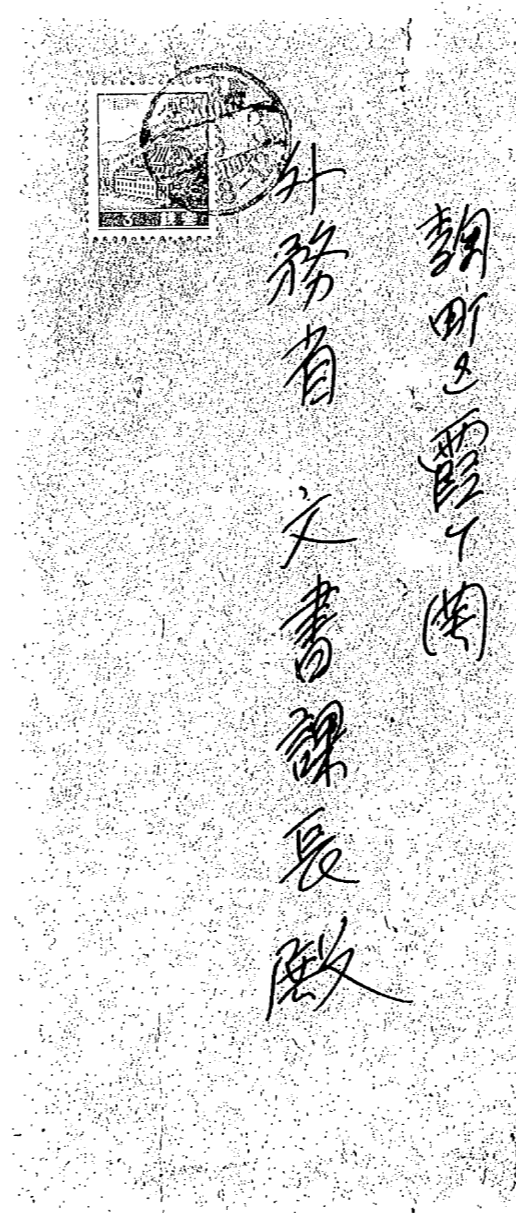 麹町区霞ヶ関
外務省 文書課長殿